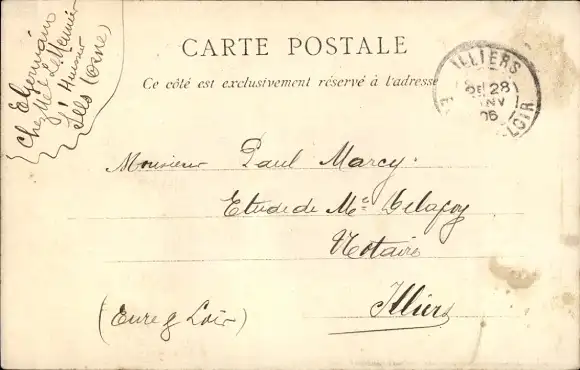 E Germain
Chez Me Le Meunier
Huissier
Sées (Orne)
CARTE POSTALE
Ce côté est exclusivement réservé à l'adresse
ILLIERS
28
NV
06
LOIR
Monsieur Paul Marcy.
Etude de Me Delafoy
Notaire
Illiers
(Eure & Loir)